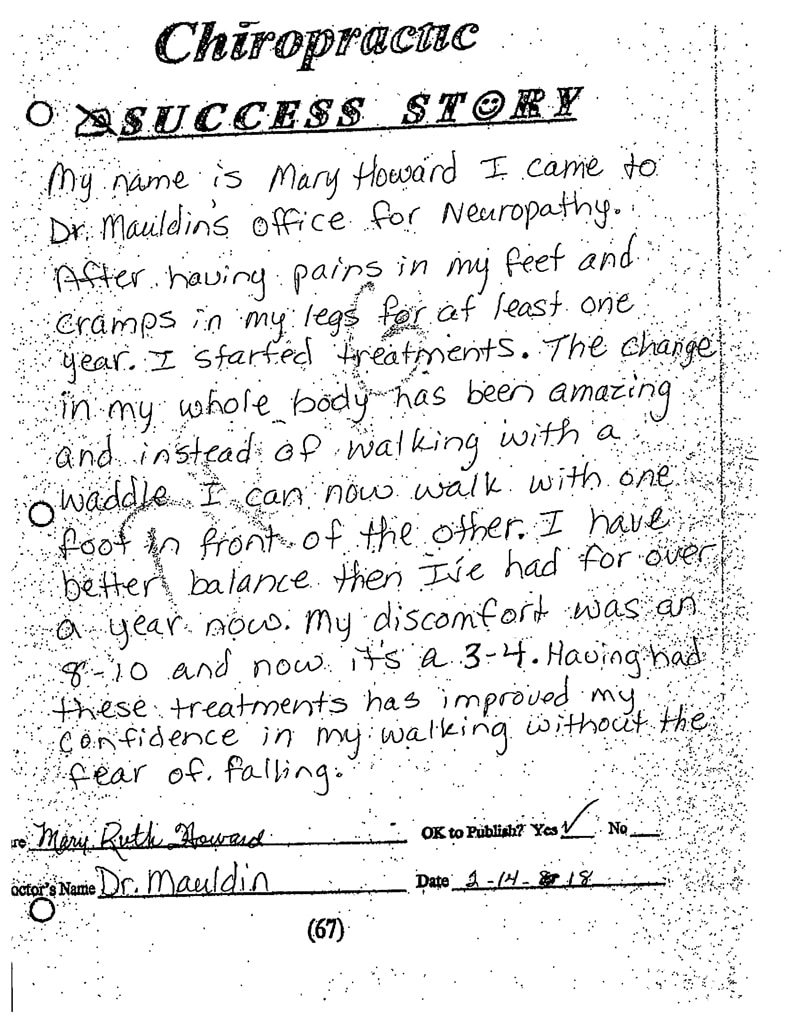 Chiropractic
SUCCESS STORY
My name is Mary Howard I came to
Dr. Mauldin's office for Neuropathy.
After having pains in my feet and
cramps in my legs for at least one
year. I started treatments. The change
in my whole body has been amazing
and instead of walking with a
waddle I can now walk with one
foot in front of the other. I have
better balance then I've had for over
a year now. My discomfort was an
8-10 and now it's a 3-4. Having had
these treatments has improved my
confidence in my walking without the
fear of falling.
re Mary Ruth Howard OK to Publish? Yes ✓ No
octor's Name Dr. Mauldin Date 2-14-18
(67)